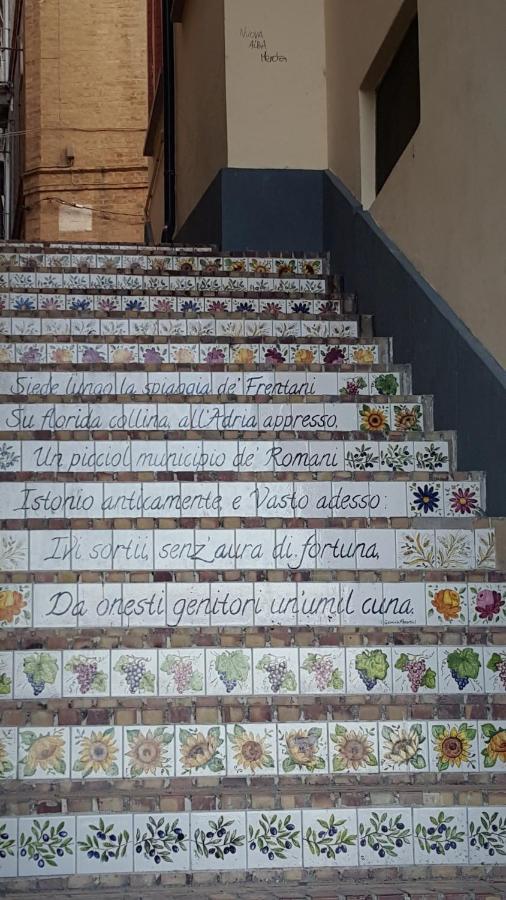 Nuova
Alba
Siede lungo la spiaggia de' Frentani
Su florida collina, all'Adria appresso,
Un picciol municipio de' Romani
Istonio anticamente, e Vasto adesso:
Ivi sortii, senz'aura di fortuna,
Da onesti genitori un'umil cuna.